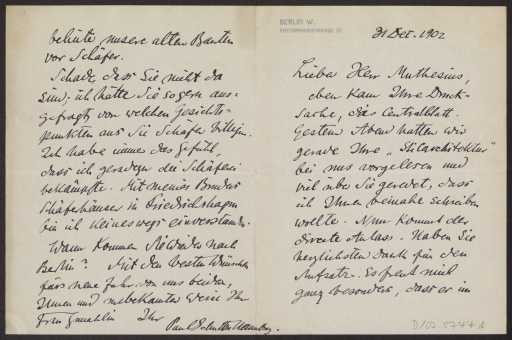 BERLIN W.
31 Dez. 1902
Lieber Herr Muthesius,
eben kam Ihre Druck-
sache, das Centralblatt.
Gestern Abend hatten wir
gerade Ihre „Stilarchitektur"
bei uns vorgelesen und
viel über Sie geredet, dass
ich Ihnen beinahe schreiben
wollte. Nun kommt der
direkte Anlass. Haben Sie
herzlichsten Dank für den
Aufsatz. So freut mich
ganz besonders, dass er im
behüte unsere alten Bauten
vor Schäfer.
Schade dass Sie nicht da
sind; ich hätte Sie so gern aus-
gefragt von welchen Gesichts-
punkten aus Sie Schäfer billigen.
Ich habe immer das Gefühl,
dass ich geradezu die Schäferei
bekämpfte. Mit meines Bruders
Schäferhäuser in Friedrichshagen
bin ich keineswegs einverstanden.
Wann kommen Sie
nach
Berlin? Mit den besten Wünschen
fürs neue Jahr von uns beiden,
Ihnen und unbekannter weise Ihr
Frau Gemahlin Ihr
Paul Schultze Naumburg.